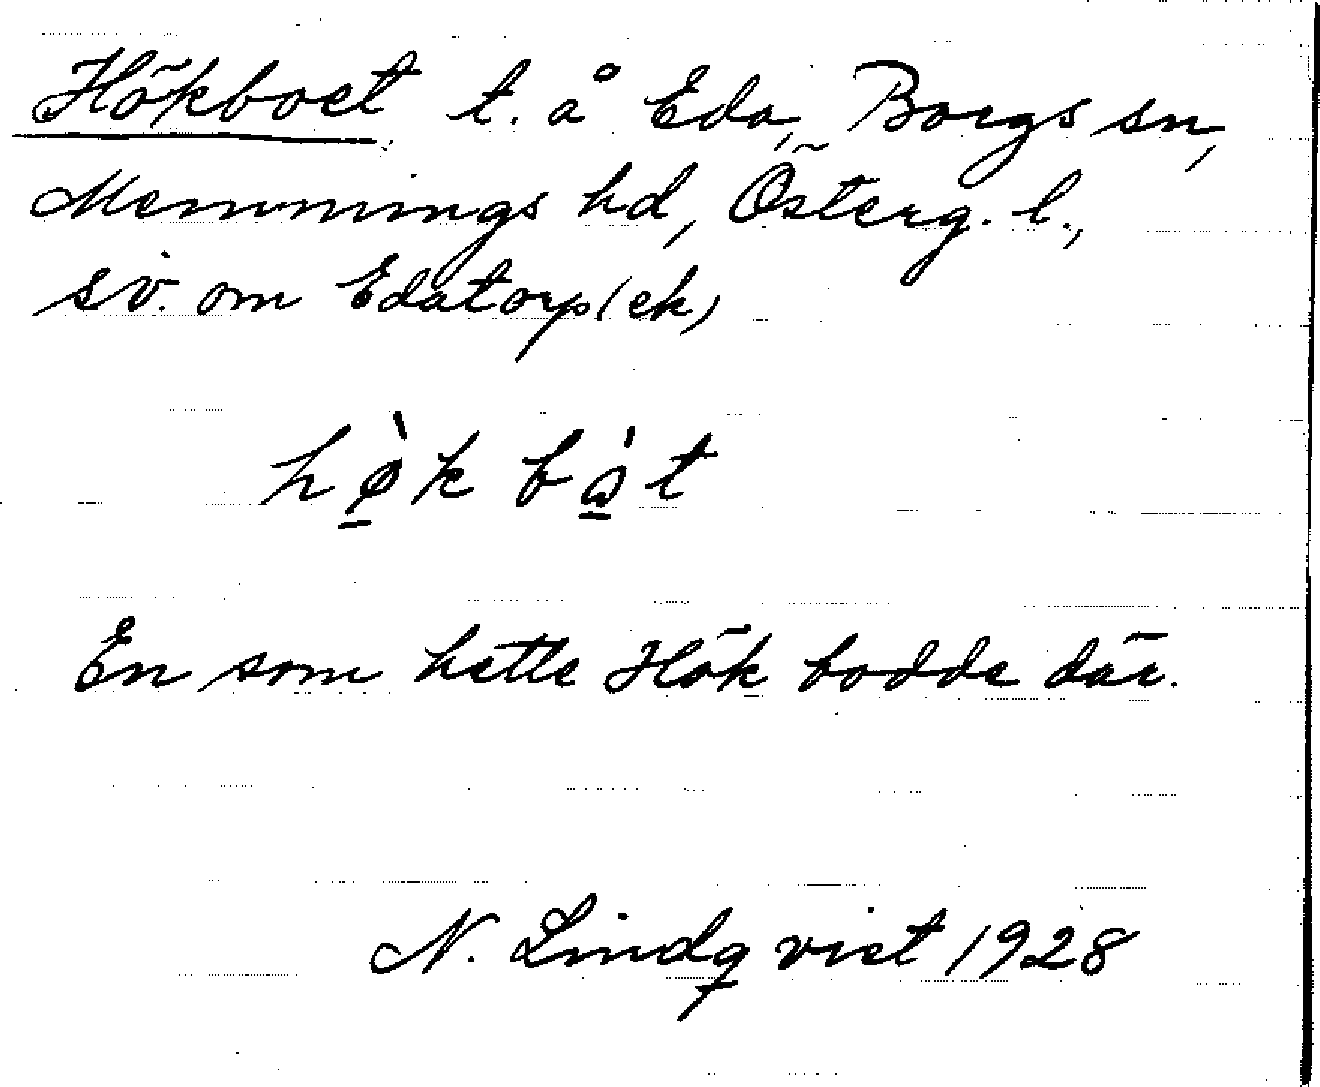 Hökboet t. å Eda, Borgs sn,
Memmings hd, Österg. l.,
sv. om Edatorp (ek)
hø̠̀k bὼ̠t
En som hette Hök bodde där.
N. Lindqvist 1928